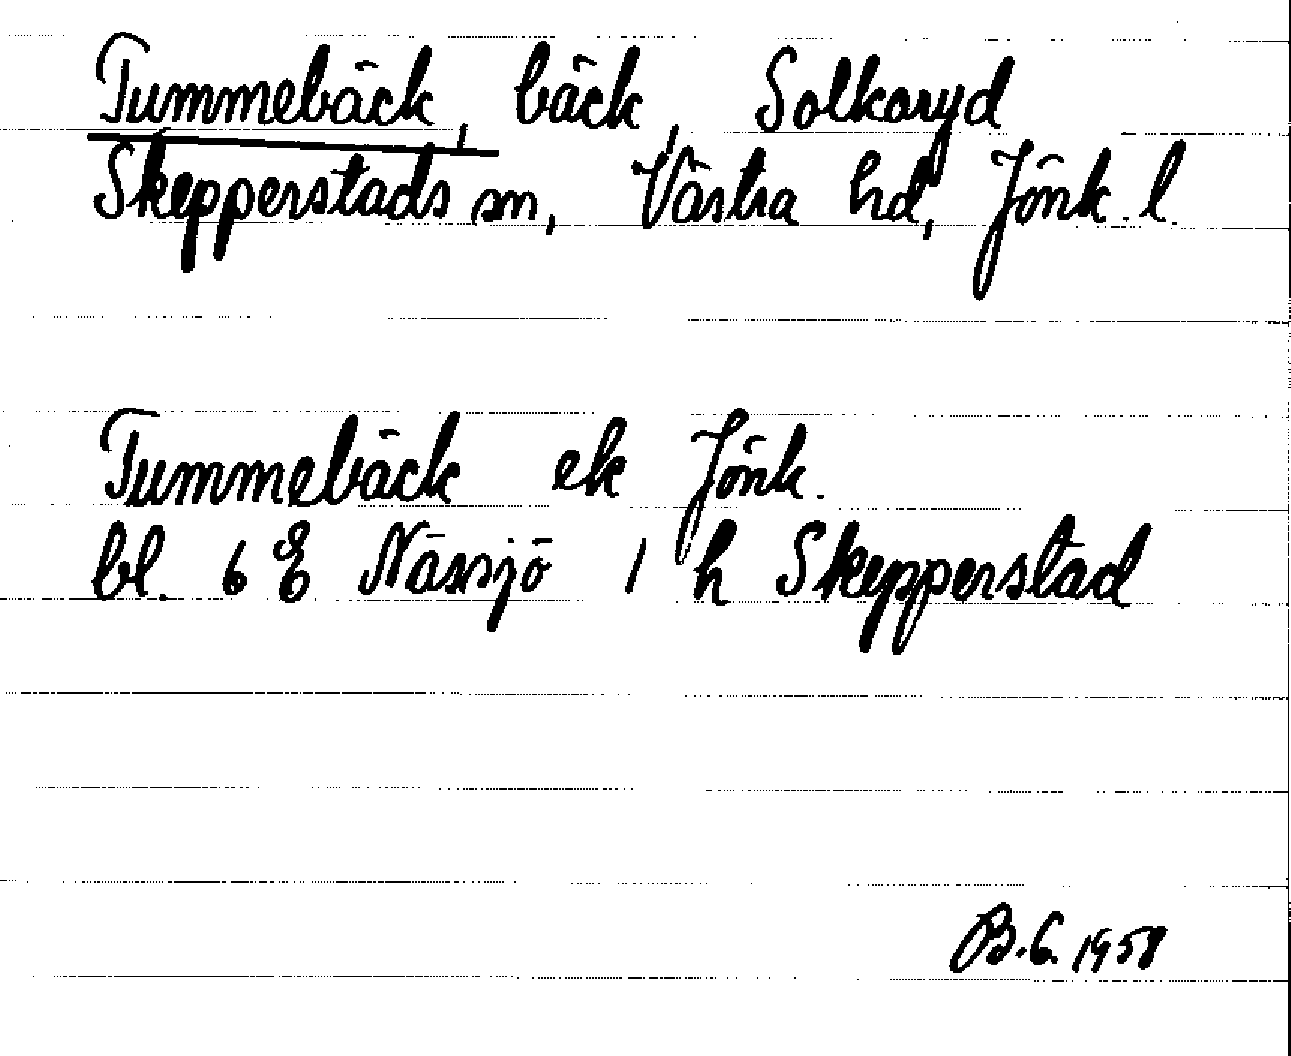 Tummebäck, bäck, Solkaryd
Skepperstads sn, Västra hd, Jönk. l.
Tummebäck ek Jönk.
bl. 6 E Nässjö 1 h Skepperstad
B.G. 1958